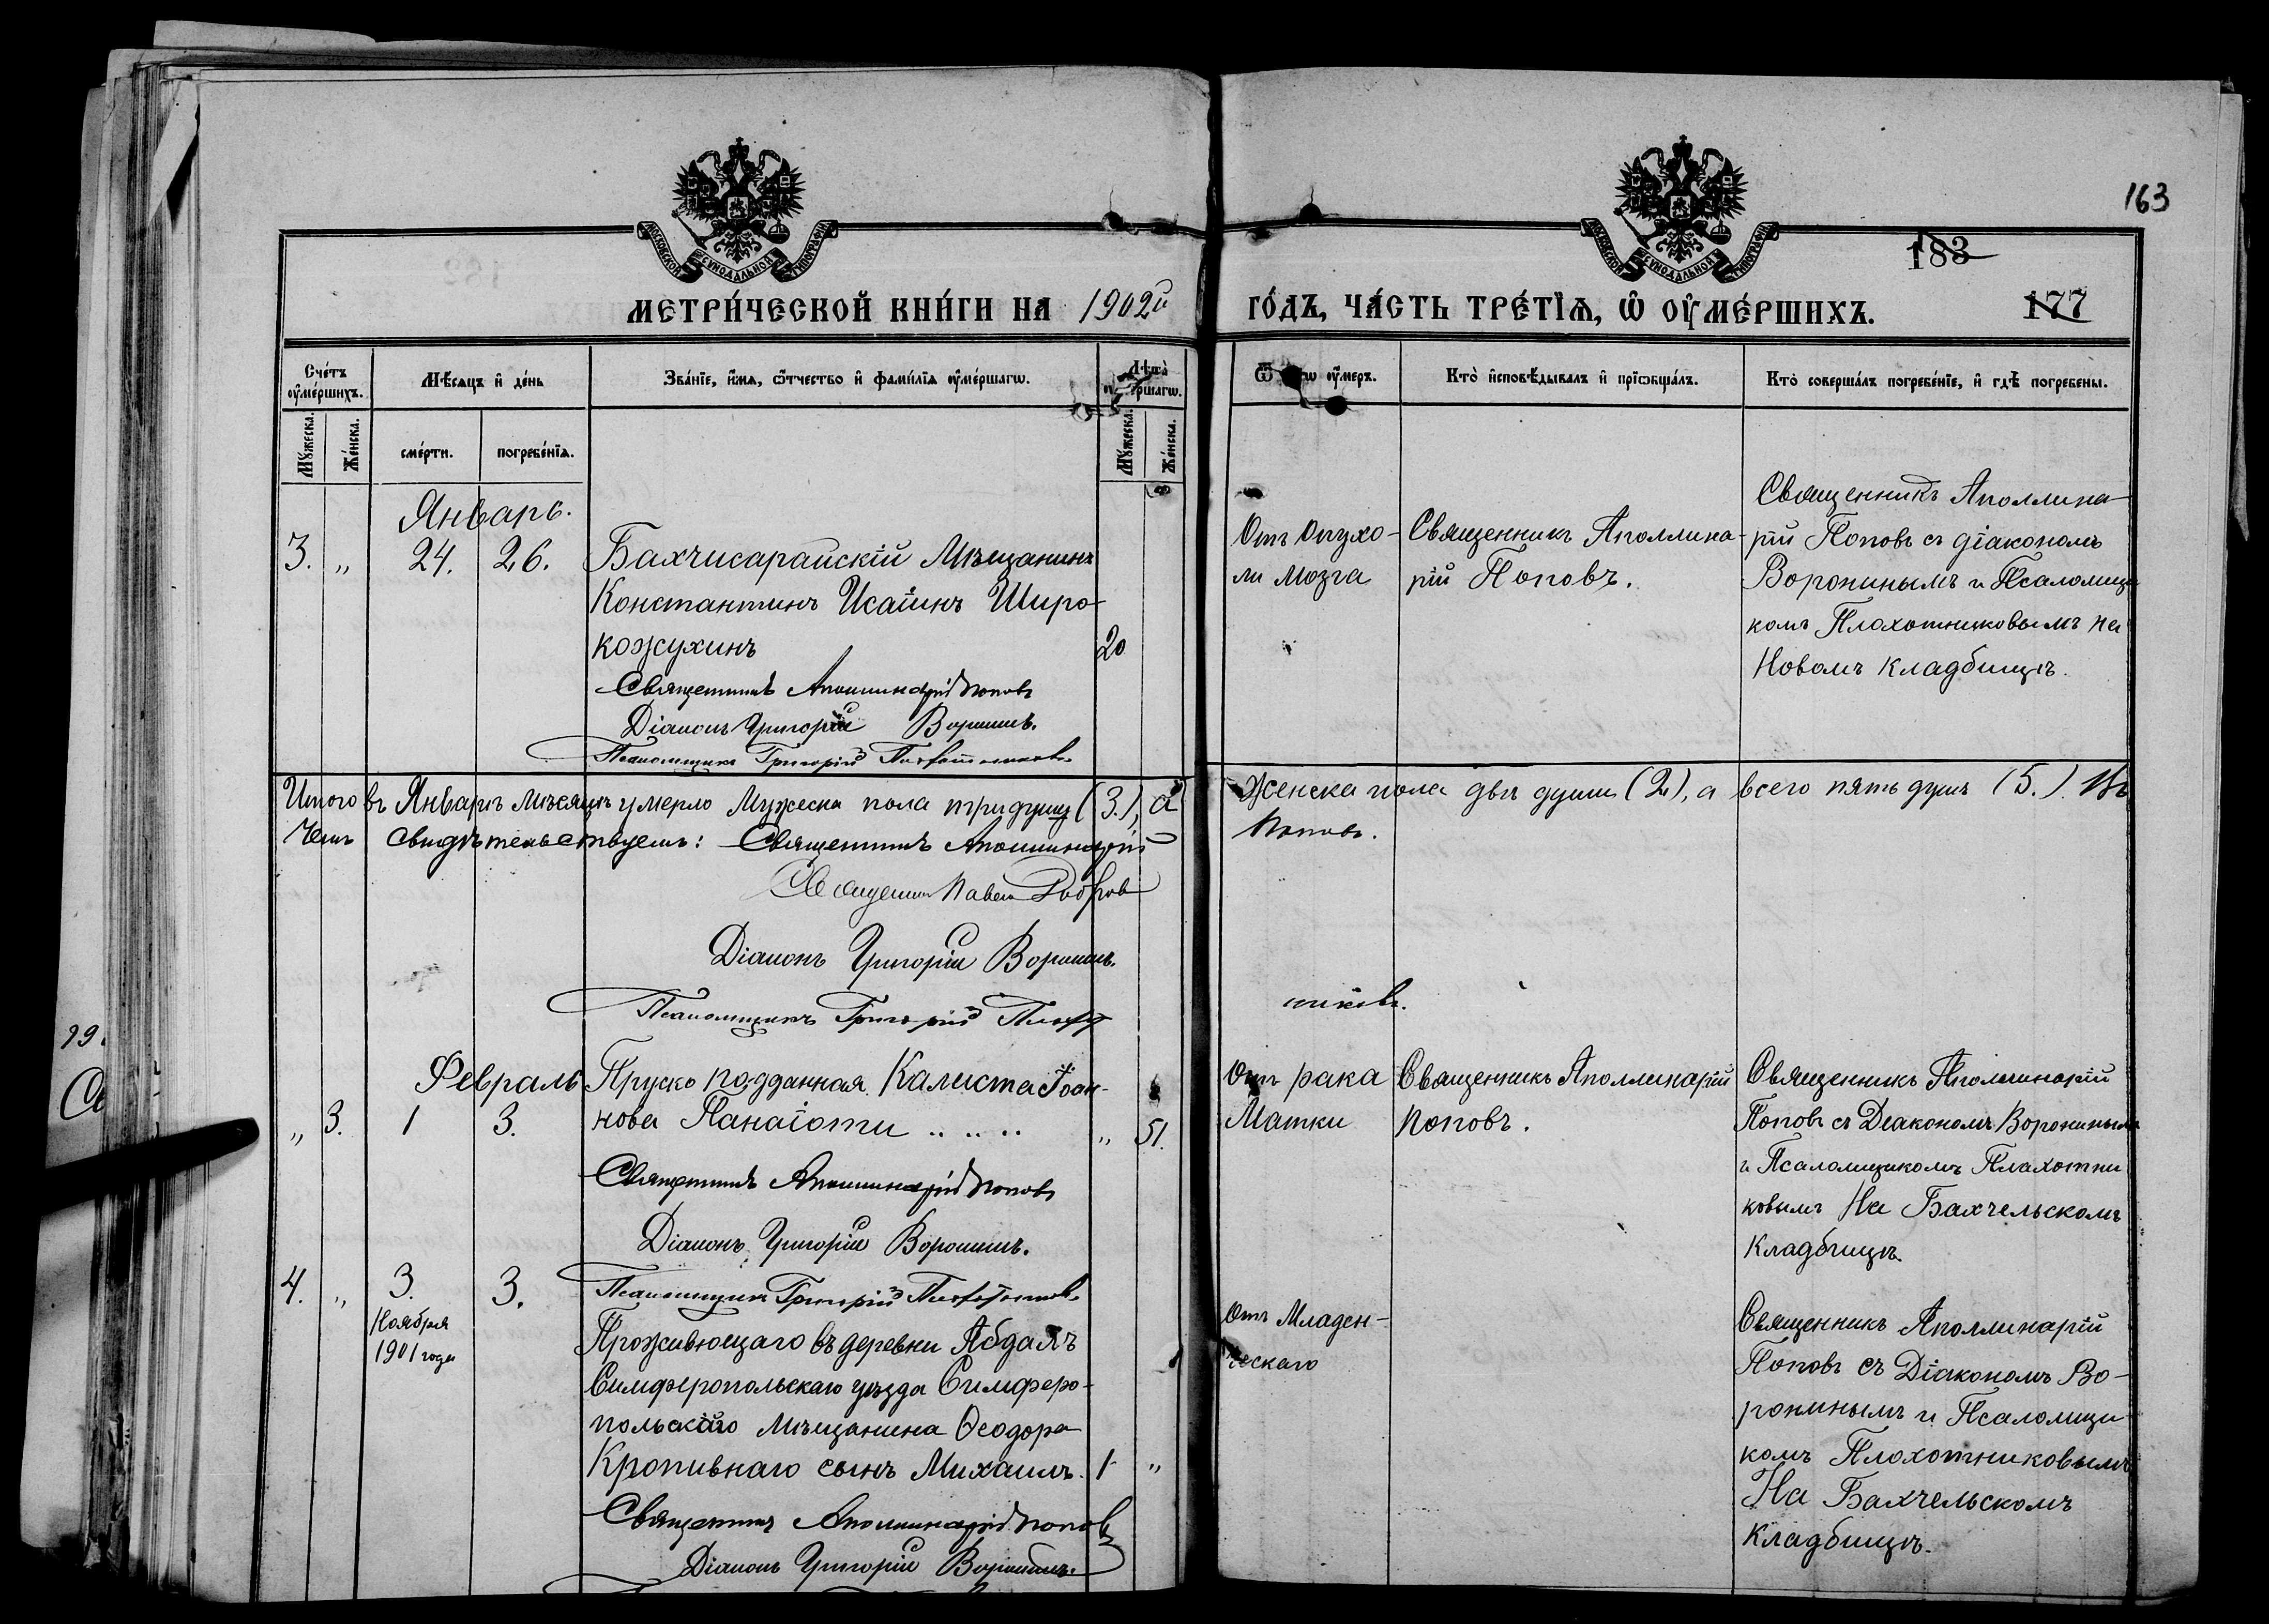 163
183
177
МОСКОВСКОЙ СѴНОДАЛЬНОЙ ТИПОГРАФІИ
МОСКОВСКОЙ СѴНОДАЛЬНОЙ ТИПОГРАФІИ
МЕТРИ́ЧЕСКОЙ КНИ́ГИ НА 1902й ГО́ДЪ, ЧА́СТЬ ТРЕ́ТЇѦ, Ѽ ОУ҆МЕ́РШИХЪ.
Сче́тъ оу҆ме́ршихъ.
Мѣ́сяцъ и҆ де́нь
Зва́нїе, и҆́мя, ѻ҆́тчество и҆ фами́лїя оу҆ме́ршагѡ.
Лѣ́та
ршагѡ.
Мꙋ́жеска.
Же́нска.
сме́рти.
погребе́нїя.
Мꙋ́жеска.
Же́нска.
оу҆́меръ.
Кто̀ и҆сповѣ́дывалъ и҆ прїѡбща́лъ.
Кто̀ соверша́лъ погребе́нїе, и҆ гдѣ̀ погребены.
Январь.
3. „ 24. 26.
Бахчисарайскій Мѣщанинъ
Константинъ Исаiинъ Широ-
кожухинъ 20
Священникъ Аполлинарій Поповъ
Діаконъ Григорій Воронинъ.
Псаломщикъ Григорій Плохотниковъ
Отъ опухо-
ли мозга
Священникъ Аполлина-
рій Поповъ.
Священникъ Аполлина-
рій Поповъ съ діакономъ
Воронинымъ и Псаломщи
комъ Плохотниковымъ на
Новомъ кладбищѣ.
Итого въ Январѣ мѣсяцѣ умерло Мужеска пола три души (3.), а Женска пола двѣ души (2), а всего пять душъ (5.). Въ
чемъ свидѣтельствуемъ: Священникъ Аполлинарій Поповъ.
Священникъ Павелъ
Діаконъ Григорій Воронинъ.
Псаломщикъ Григорій Плохот
никовъ.
Февраль
„ 3. 1 3.
Пруско подданная Калиста Іоан-
нова Панаіоти .. .. .. „ 51.
Священникъ Аполлинарій Поповъ
Діаконъ Григорій Воронинъ.
Псаломщикъ Григорій Плохотниковъ
Отъ рака
Матки
Священникъ Аполлинарій
Поповъ.
Священникъ Аполлинарій
Поповъ съ Деакономъ Воронинымъ
и Псаломщикомъ Плахотни
ковымъ На Бахчельскомъ
Кладбищѣ.
4. „ 3. 3.
Ноября
1901 года
Проживющаго въ деревни Абдалъ
Симферопольскаго уѣзда Симферо-
польскаго мѣщанина Ѳеодора
Кропивнаго сынъ Михаилъ. 1 „
Священникъ Аполлинарій Поповъ
Діаконъ Григорій Воронинъ.
Отъ Младен-
ческаго
Священникъ Аполлинарій
Поповъ съ Діакономъ Во-
ронинымъ и Псаломщи
комъ Плохотниковымъ
На Бахчельскомъ
Кладбищѣ.
19.